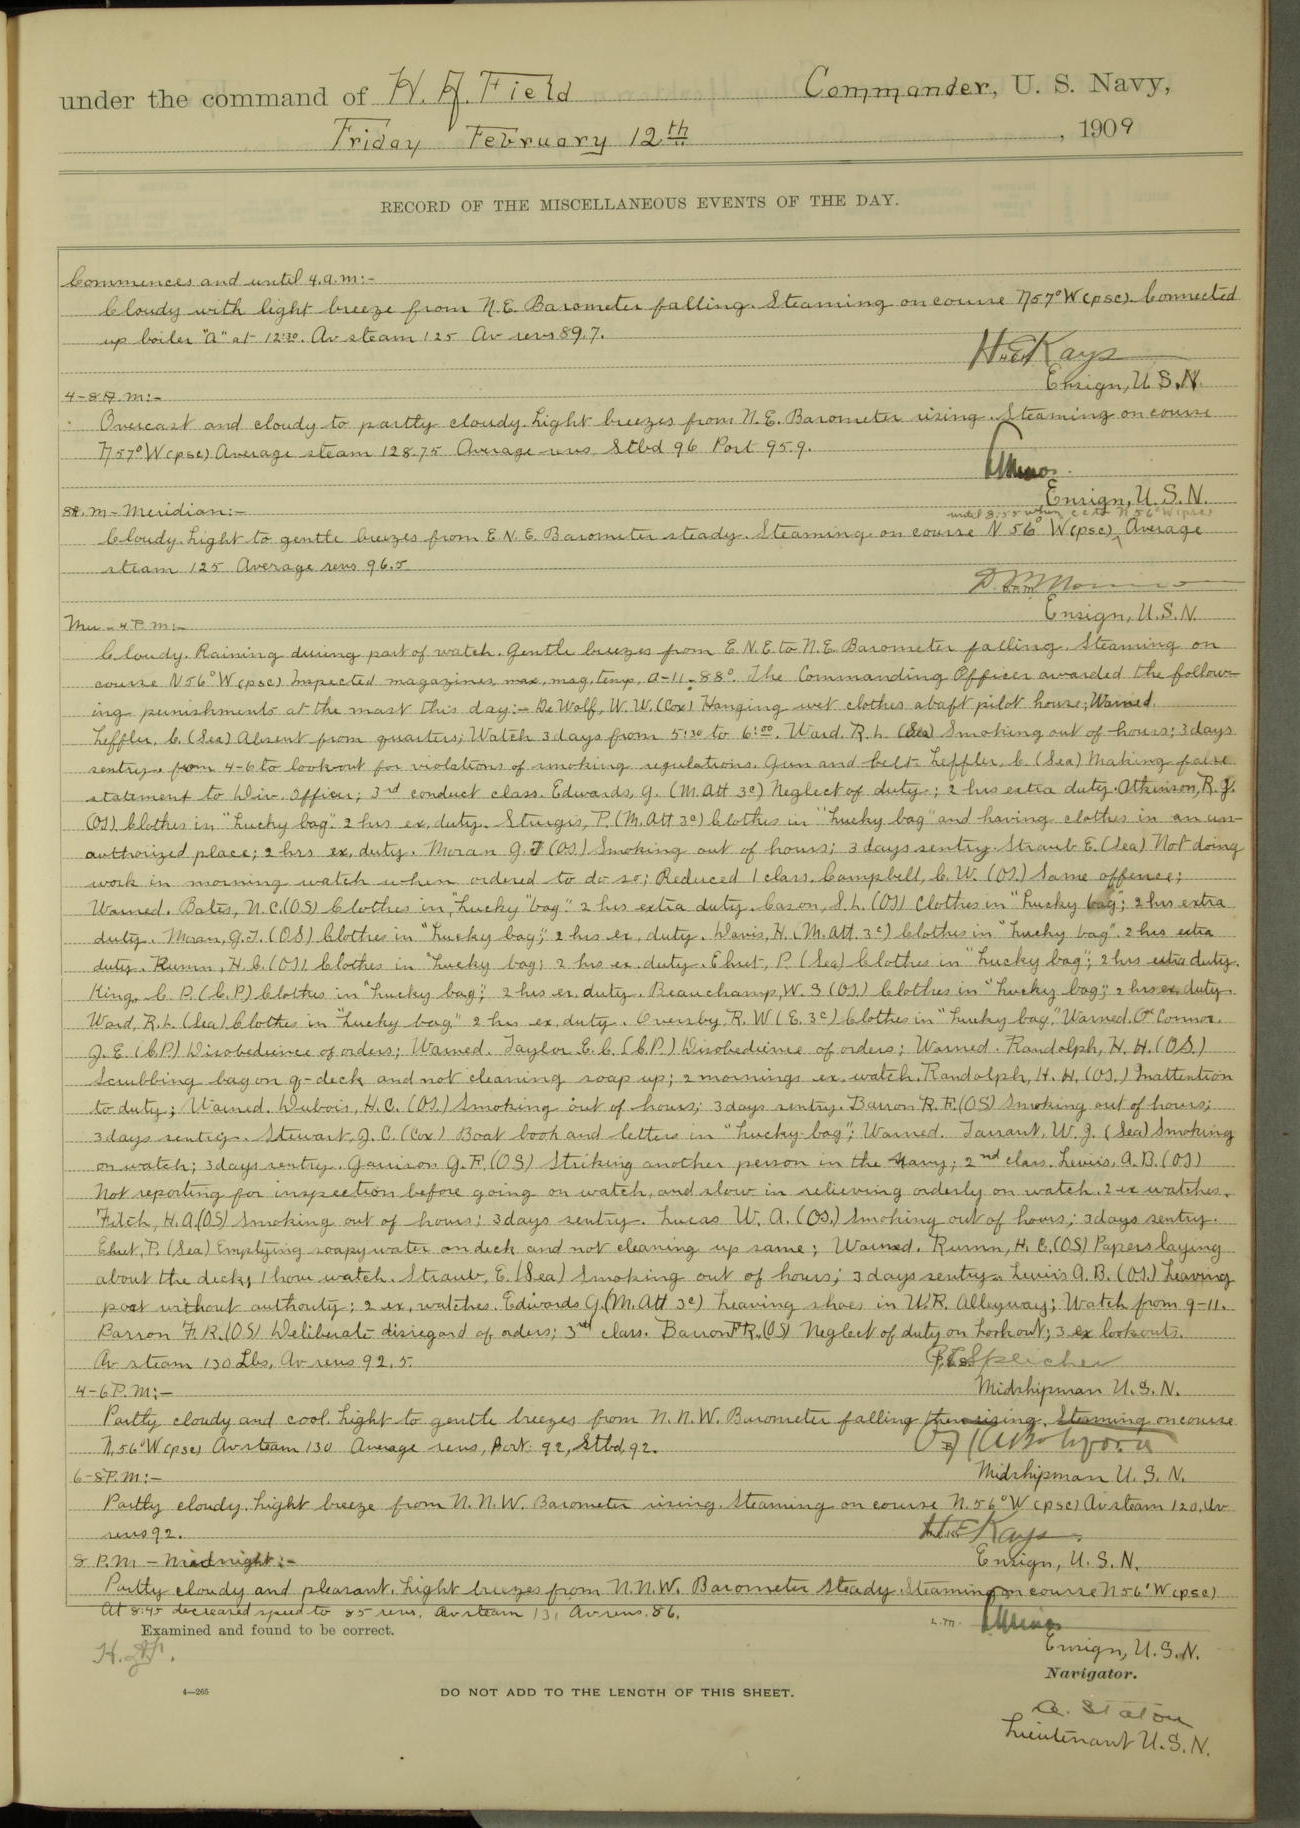 under the command of H. A. Field Commander, U. S. Navy,
Friday February 12th, 1909
RECORD OF THE MISCELLANEOUS EVENTS OF THE DAY.
Commences and until 4.a.m:-
Cloudy with light breeze from N.E. Barometer falling. Steaming on course N57°W(psc). Connected
up boiler "A" at 12:30. Av steam 125 Av revs 89.7.
H.E. Kays
Ensign, U.S.N.
4-8 A.m:-
Overcast and cloudy to partly cloudy. Light breezes from N.E. Barometer rising. Steaming on course
N57°W(psc) Average steam 128.75 Average revs. Stbd 96 Port 95.9.
Ensign, U.S.N.
8A.m - Meridian:-
until 8:55 when c c to N 56° W (psc)
Cloudy. Light to gentle breezes from E N E. Barometer steady. Steaming on course N 56° W(psc), Average
steam 125 Average revs 96.5
Ensign, U.S.N.
Mer - 4 P.m:-
Cloudy. Raining during part of watch. Gentle breezes from E.N.E to N.E. Barometer falling. Steaming on
course N56°W(psc) Inspected magazines, max, mag, temp, A-11-88°. The Commanding Officer awarded the follow-
ing punishments at the mast this day:- De Wolf, W.W. (Cox) Hanging wet clothes abaft pilot house; Warned.
Leffler, C. (Sea) Absent from quarters; Watch 3 days from 5:30 to 6:00. Ward, R.L. (Sea) Smoking out of hours; 3 days
sentry from 4-6 to lookout for violations of smoking regulations. Gun and belt. Leffler, C. (Sea) Making false
statement to Div. Officer; 3rd conduct class. Edwards, G. (M.Att 3c) Neglect of duty; 2 hrs extra duty. Atkinson, R.J.
(OS) Clothes in "Lucky bag". 2 hrs ex. duty. Sturgis, P. (M.Att 3c) Clothes in "Lucky bag" and having clothes in an un-
authorized place; 2 hrs ex. duty. Moran G.J (OS) Smoking out of hours; 3 days sentry. Straub E. (Sea) Not doing
work in morning watch when ordered to do so; Reduced 1 class. Campbell, C.W. (OS.) Same offence;
Warned. Bates, N.C. (OS) Clothes in "Lucky bag". 2 hrs extra duty. Cason, S.L. (OS) Clothes in "Lucky bag"; 2 hrs extra
duty. Moran, G.J. (OS) Clothes in "Lucky bag"; 2 hrs ex. duty. Davis, H. (M.Att. 3c) Clothes in "Lucky bag". 2 hrs extra
duty. Rumn, H.C. (OS) Clothes in "Lucky bag; 2 hrs ex. duty. Ehret, P. (Sea) Clothes in "Lucky bag"; 2 hrs extra duty.
King, C.P. (C.P) Clothes in "Lucky bag"; 2 hrs ex. duty. Beauchamp, W.S (OS) Clothes in "Lucky bag"; 2 hrs ex. duty.
Ward, R.L. (Sea) Clothes in "Lucky bag" 2 hrs ex. duty. Oversby, R.W (E. 3c) Clothes in "Lucky bag," Warned. O'Connor
J.E. (C.P.) Disobedience of orders; Warned. Taylor E.C. (C.P.) Disobedience of orders; Warned. Randolph, H.H. (OS.)
Scrubbing bag on g-deck and not cleaning soap up; 2 mornings ex. watch. Randolph, H.H. (OS.) Inattention
to duty; Warned. Dubois, H.C. (OS.) Smoking out of hours; 3 days sentry. Barron R.F. (OS) Smoking out of hours;
3 days sentry. Stewart, J.C. (Cox) Boat book and letters in "Lucky-bag"; Warned. Tarrant, W.J. (Sea) Smoking
on watch; 3 days sentry. Garrison G.F. (OS) Striking another person in the Navy; 2nd class. Lewis, A.B. (OS)
Not reporting for inspection before going on watch, and slow in relieving orderly on watch. 2 ex watches.
Fitch, H.A. (OS) Smoking out of hours; 3 days sentry. Lucas W.A. (OS.) Smoking out of hours; 3 days sentry.
Ehret, P. (Sea) Emptying soapy water on deck and not cleaning up same; Warned. Rumn, H.C. (OS) Papers laying
about the deck; 1 hour watch. Straub, E. (Sea) Smoking out of hours; 3 days sentry. Lewis A.B. (OS.) Leaving
post without authority; 2 ex. watches. Edwards G. (M.Att 3c) Leaving shoes in W.R. Alleyway; Watch from 9-11.
Barron F.R. (OS) Deliberate disregard of orders; 3rd class. Barron F.R. (OS) Neglect of duty on lookout; 3 ex lookouts.
Av steam 130 Lbs, Av revs 92.5.
Speicher
4-6 P.M:-
Midshipman U.S.N.
Partly cloudy and cool. Light to gentle breezes from N.N.W. Barometer falling then rising. Steaming on course
N.56°W(psc) Av steam 130 Average revs, Port: 92, Stbd, 92.
6-8P.M:-
Midshipman U.S.N.
Partly cloudy. Light breeze from N.N.W. Barometer rising. Steaming on course N.56°W (psc) Av steam 120. Av
revs 92.
H.E. Kays
8 P.M - Midnight:-
Ensign, U.S.N.
Partly cloudy and pleasant. Light breezes from N.N.W. Barometer steady. Steaming on course N56°W(psc)
At 8:45 decreased speed to 85 revs. Av steam 131 Av revs. 86.
Examined and found to be correct.
H.A.F.
Ensign, U.S.N.
Navigator.
4—265
DO NOT ADD TO THE LENGTH OF THIS SHEET.
A. Staton
Lieutenant U.S.N.